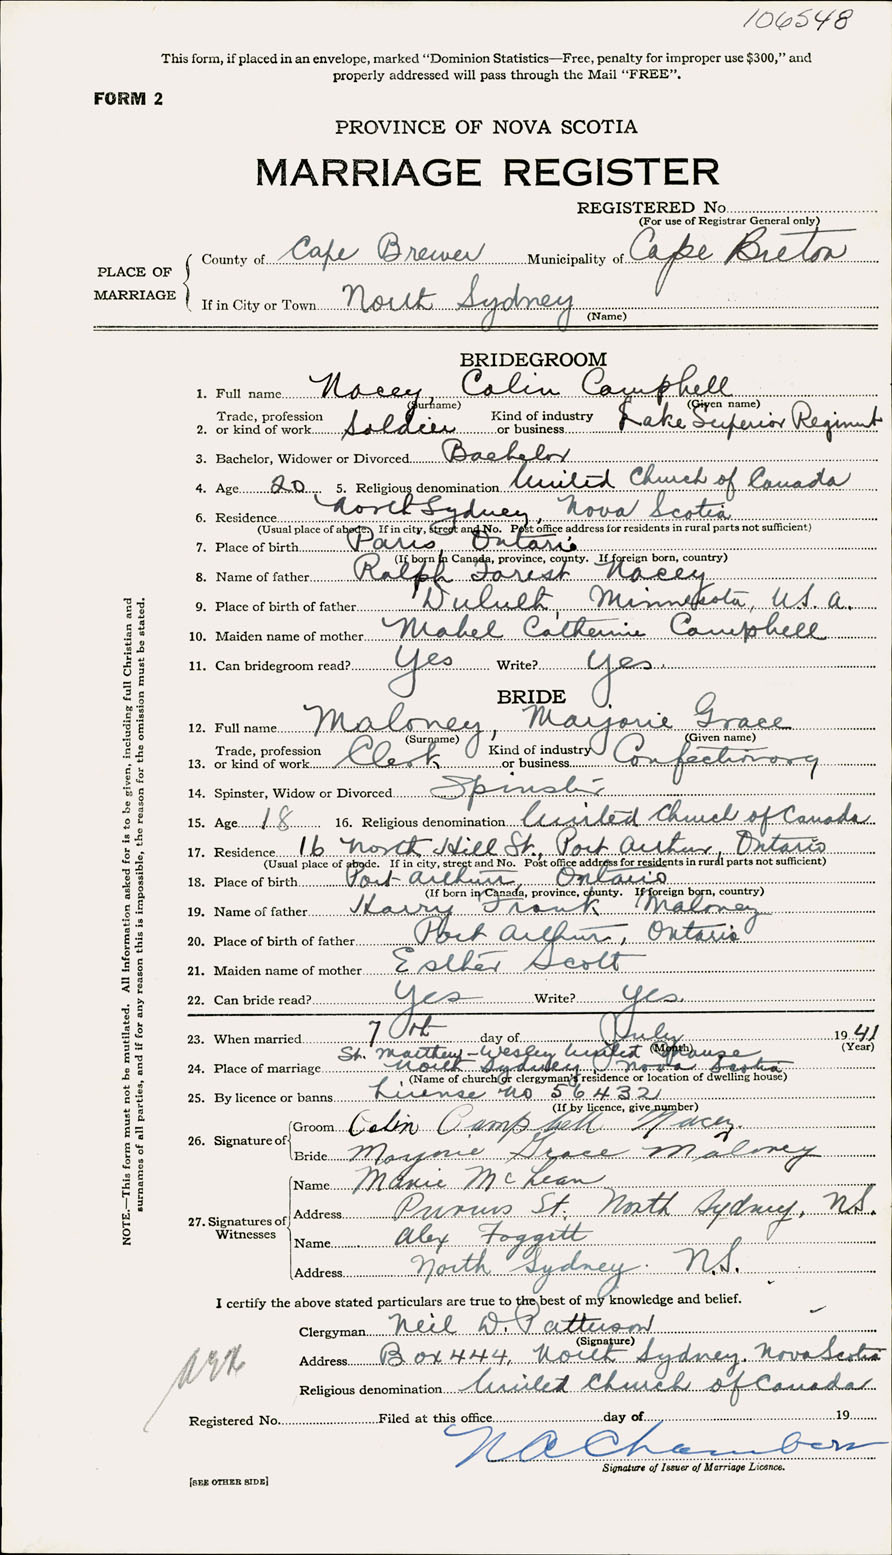 106548
This form, if placed in an envelope, marked "Dominion Statistics—Free, penalty for improper use $300," and
properly addressed will pass through the Mail "FREE".
FORM 2
PROVINCE OF NOVA SCOTIA
MARRIAGE REGISTER
REGISTERED No.
(For use of Registrar General only)
PLACE OF MARRIAGE
County of Cape Brewer Municipality of Cape Breton
If in City or Town North Sydney
(Name)
BRIDEGROOM
1. Full name Nacey, Colin Campbell
(Surname) (Given name)
2. Trade, profession or kind of work Soldier Kind of industry or business Lake Superior Regiment
3. Bachelor, Widower or Divorced Bachelor
4. Age 20 5. Religious denomination United Church of Canada
6. Residence North Sydney, Nova Scotia
(Usual place of abode. If in city, street and No. Post office address for residents in rural parts not sufficient)
7. Place of birth Paris, Ontario
(If born in Canada, province, county. If foreign born, country)
8. Name of father Ralph Forest Nacey
9. Place of birth of father Duluth, Minnesota, U.S.A.
10. Maiden name of mother Mabel Catherine Campbell
11. Can bridegroom read? Yes Write? Yes.
BRIDE
12. Full name Maloney, Marjorie Grace
(Surname) (Given name)
13. Trade, profession or kind of work Clerk Kind of industry or business Confectionary
14. Spinster, Widow or Divorced Spinster
15. Age 18 16. Religious denomination United Church of Canada
17. Residence 16 North Hill St., Port Arthur, Ontario
(Usual place of abode. If in city, street and No. Post office address for residents in rural parts not sufficient)
18. Place of birth Port Arthur, Ontario
(If born in Canada, province, county. If foreign born, country)
19. Name of father Harry Frank Maloney
20. Place of birth of father Port Arthur, Ontario
21. Maiden name of mother Esther Scott
22. Can bride read? Yes Write? Yes.
23. When married 7th day of July 1941
(Month) (Year)
St. Matthew-Wesley United Manse
24. Place of marriage North Sydney, Nova Scotia
(Name of church or clergyman's residence or location of dwelling house)
25. By licence or banns License No 56432
(If by licence, give number)
26. Signature of
Groom Colin Campbell Nacey
Bride Marjorie Grace Maloney
27. Signatures of Witnesses
Name Marie McLean
Address St. North Sydney, N.S.
Name Alex Foggitt
Address North Sydney. N.S.
I certify the above stated particulars are true to the best of my knowledge and belief.
Clergyman Neil D. Patterson
(Signature)
Address Box 444, North Sydney, Nova Scotia
Religious denomination United Church of Canada
Registered No. Filed at this office day of 19
N A Chambers
Signature of Issuer of Marriage Licence.
[SEE OTHER SIDE]
NOTE.—This form must not be mutilated. All Information asked for is to be given, including full Christian and
surnames of all parties, and if for any reason this is impossible, the reason for the omission must be stated.